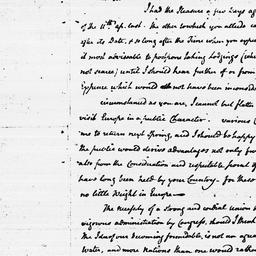 I had the Pleasure a few Days ag
of the 11th Sep. last. The other to which you allude ca
after its Date, & so long after the Time when you appea
it most adviseable to postpone taking Lodgings (whe
not scarce) until I should hear further of or from
Expence which would not have been inconside
circumstanced as you are, I cannot but flatter
visit Europe in a public Character. various C
me to return next Spring, and I should be happy
the public would derive advantages not only fro
also from the Consideration and respectable
have long been held by your Country. For these
no little Weight in Europe—
The necessity of a strong and cordial union
vigorous administration by Congress, should I think
the Idea of our becoming formidable, is not an agree
Water, and more Nations than one would rather